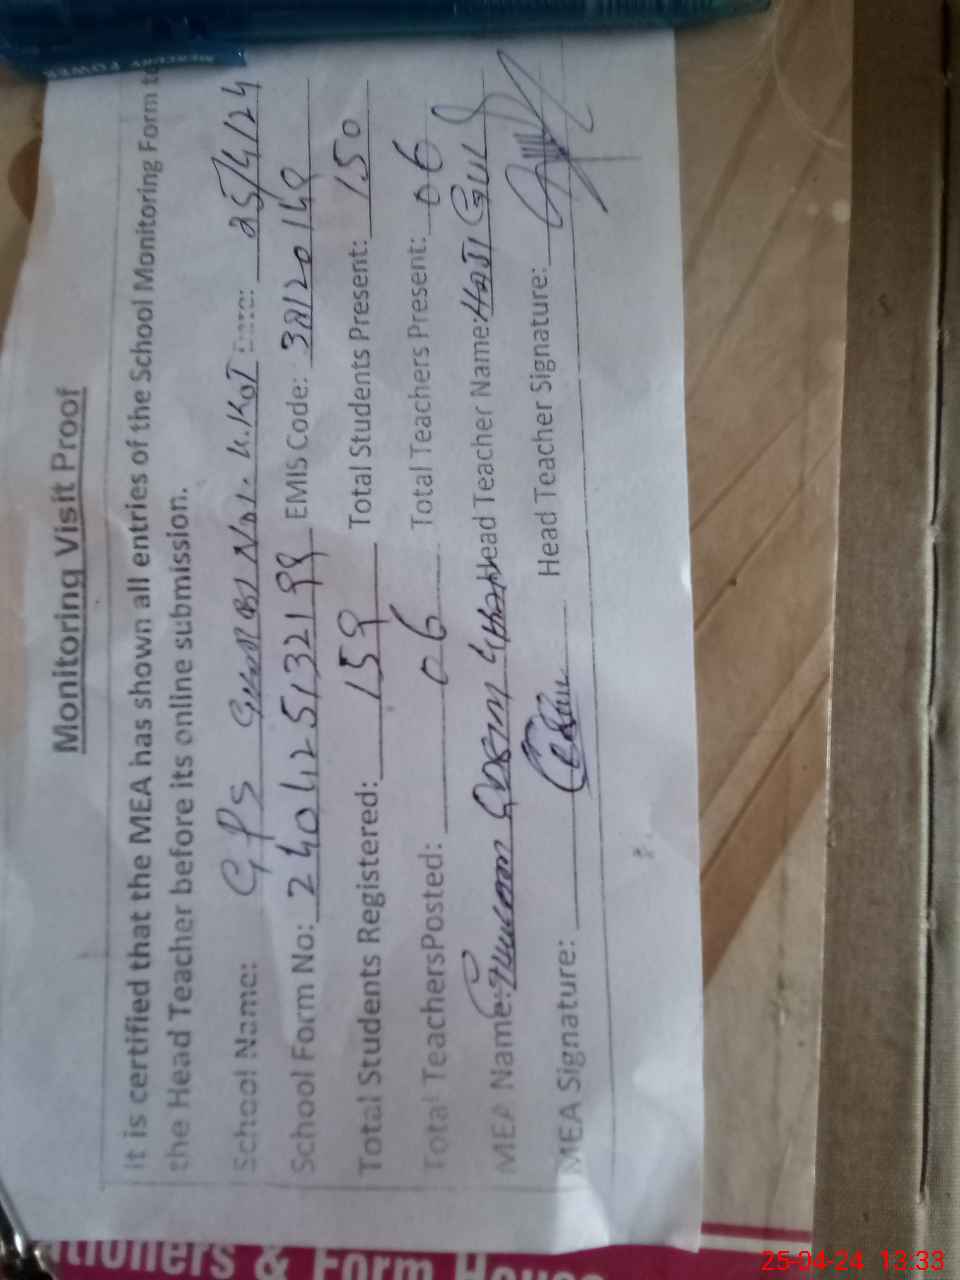 MERCURY
POWER
Monitoring Visit Proof
It is certified that the MEA has shown all entries of the School Monitoring Form to
the Head Teacher before its online submission.
School Name: GPS No1. Date: 25/4/24
School Form No: EMIS Code:
Total Students Registered: 159 Total Students Present: 150
Total TeachersPosted: 06 Total Teachers Present: 06
MEA Name: Head Teacher Name: HAJI GUL
MEA Signature: Head Teacher Signature:
ationers & Form House
25-04-24 13:33